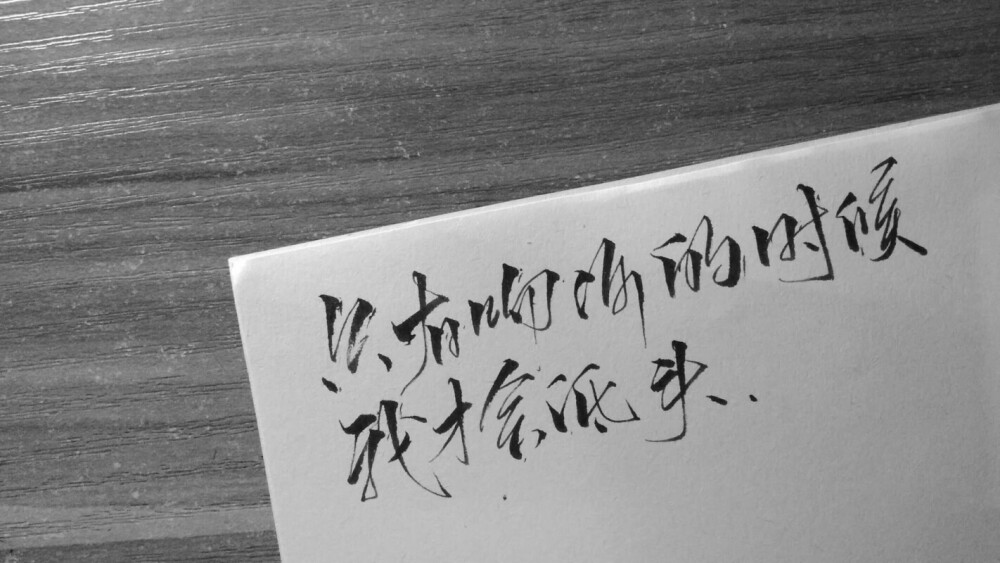 只有吻你的时候
我才会低头.